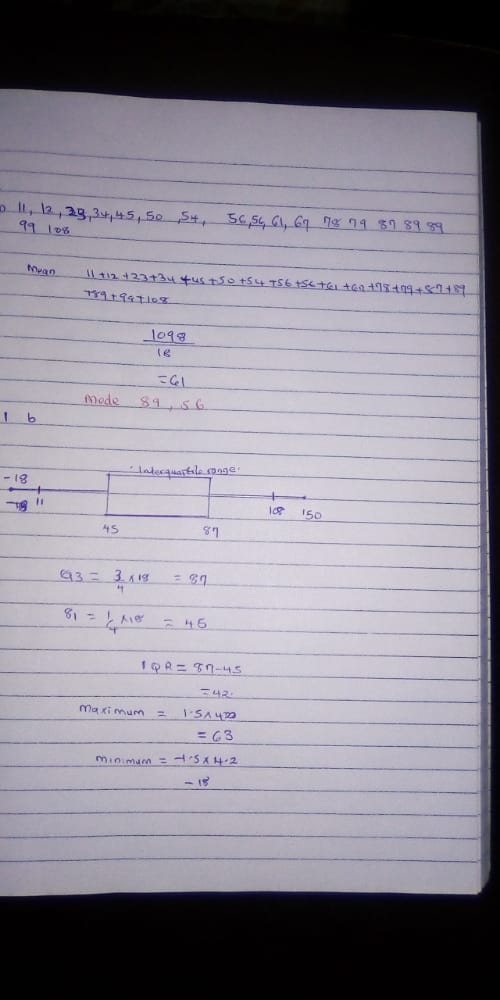 11, 12, 23, 34, 45, 50, 54, 56, 56, 61, 67 78 79 87 89 89
99 108
Mean 11+12+23+34+45+50+54+56+56+61+67+78+79+87+89
+89+99+108
1098
18
=61
Mode 89, 56
1 b
Interquartile range
-18
11 108 150
45 87
Q3 = 3/4 x18 = 87
81 = 1/4 x18 = 45
IQR = 87-45
=42.
Maximum = 1.5x42
= 63
minimum = -1.5x4.2
-18